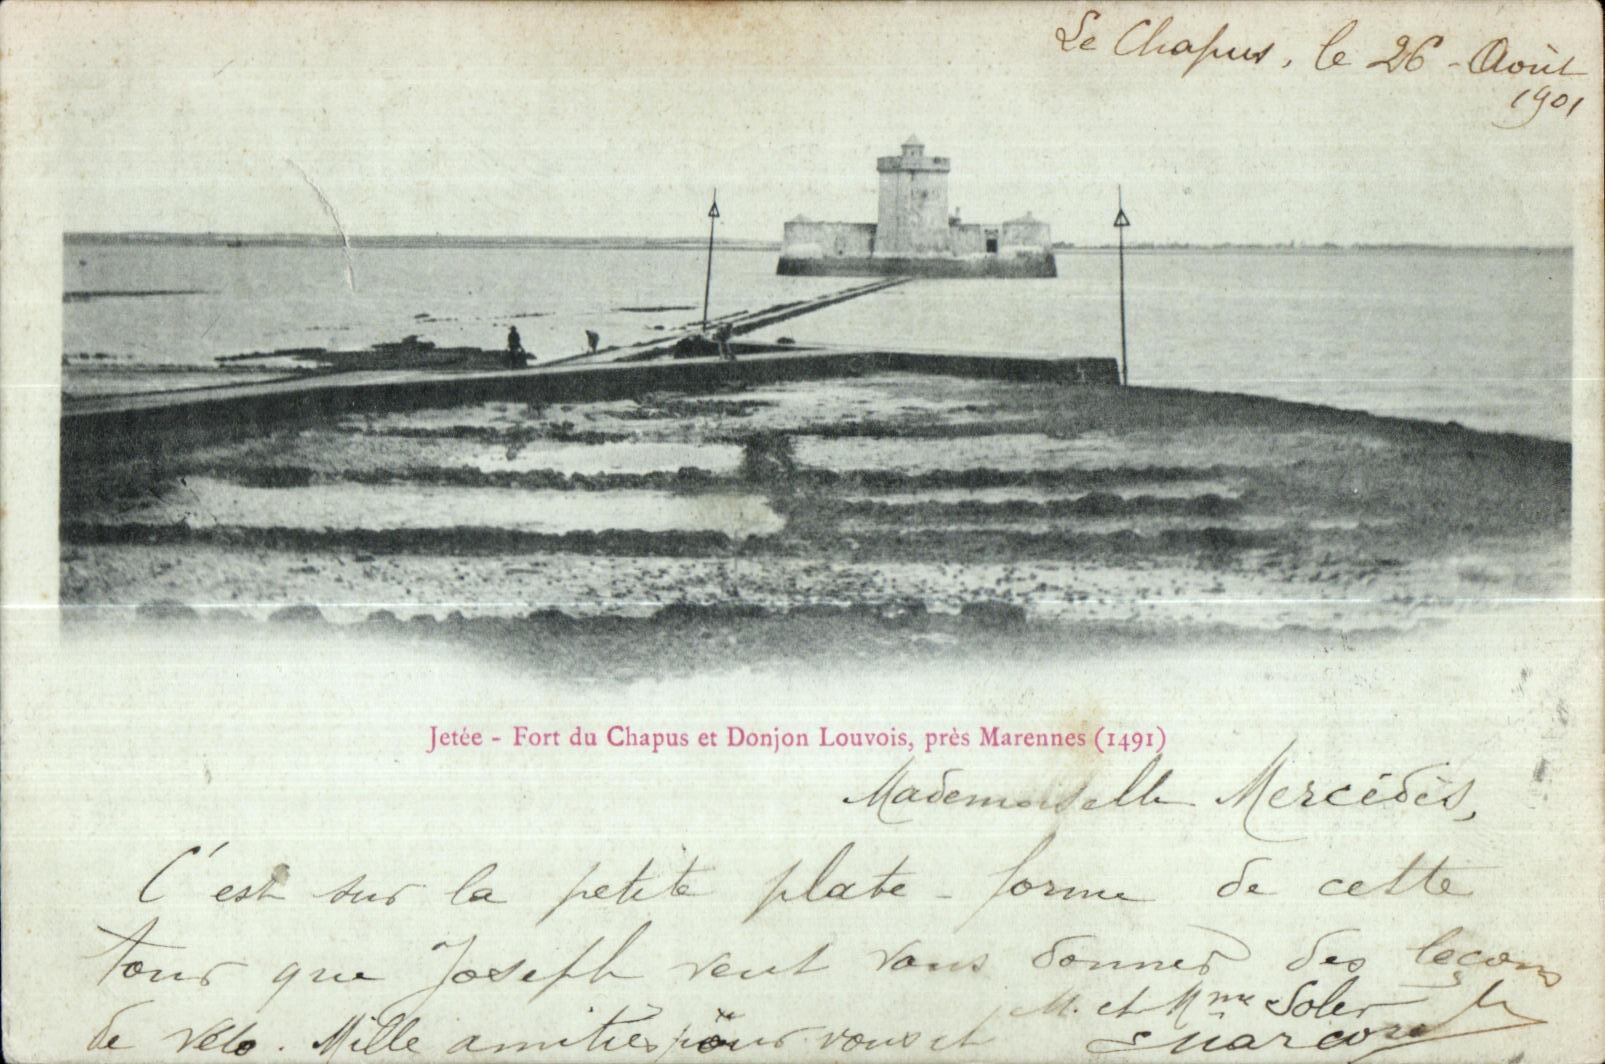 Le Chapus, le 26 - Août
1901
Jetée - Fort du Chapus et Donjon Louvois, près Marennes (1491)
Mademoiselle Mercédès,
C'est sur la petite plate-forme de cette
tour que Joseph veut vous donner des leçons
de vélo. Mille amitiés pour vous et M. et Mme Soler